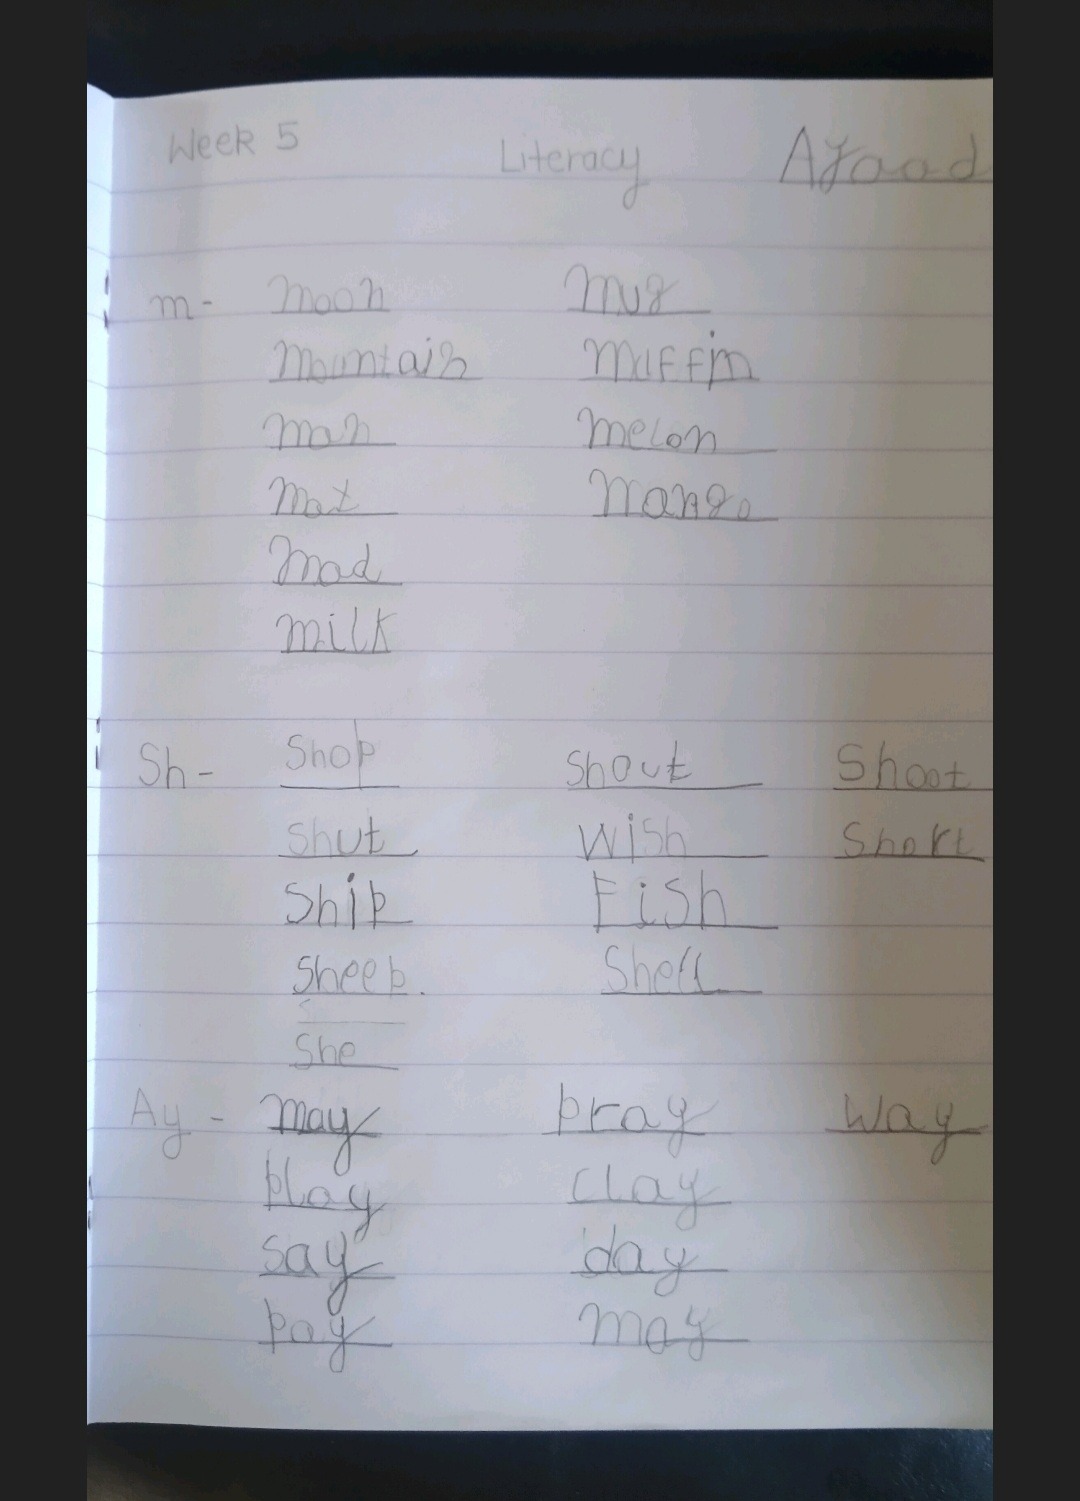 Week 5 Literacy Ajaad
m- Moon Mug
Mountain Muffin
Man Melon
Mat Mango
Mad
Milk
Sh- Shop Shout Shoot
Shut Wish Short
Ship Fish
Sheep. Shell
She
Ay - may pray Way
play clay
say day
pay may